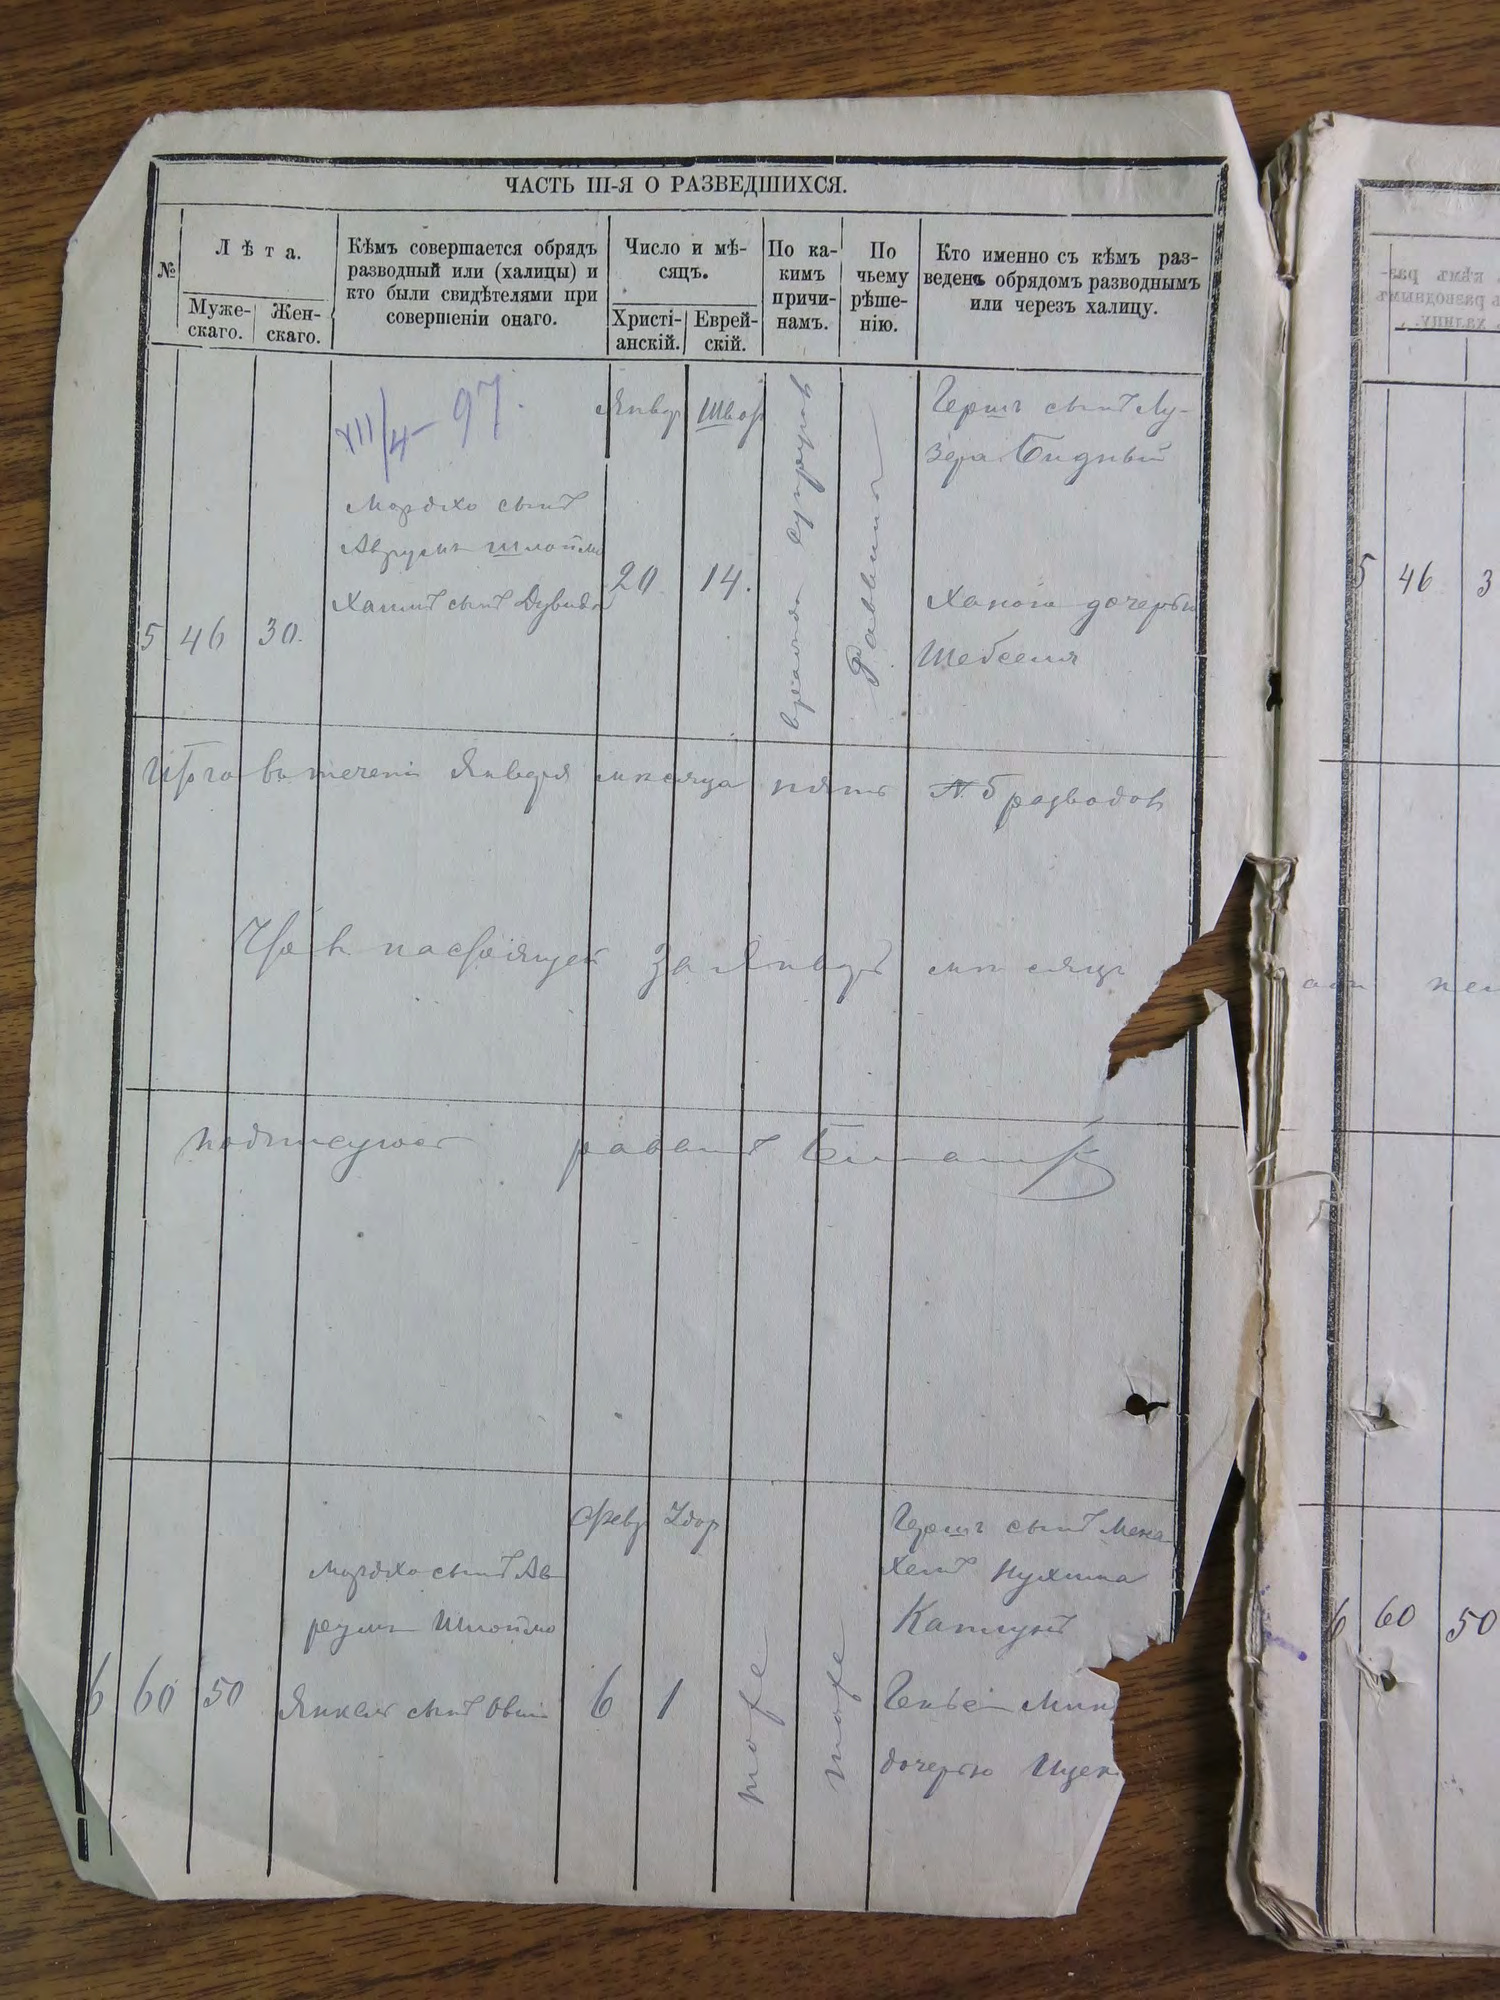 ЧАСТЬ III-Я О РАЗВЕДШИХСЯ.
№
Лѣта.
Муже-
скаго.
Жен-
скаго.
Кѣмъ совершается обрядъ
разводный или (халицы) и
кто были свидѣтелями при
совершеніи онаго.
Число и мѣ-
сяцъ.
Христі-
анскій.
Еврей-
скій.
По ка-
кимъ
причи-
намъ.
По
чьему
рѣше-
нію.
Кто именно съ кѣмъ раз-
веденъ обрядомъ разводнымъ
или черезъ халицу.
5
46
30.
XII/4 - 97.
Мордхо сынъ
Аврумъ Шлойма
Хаимъ сынъ Дувида
Январ
20
Шват
14.
супруговъ
Раввина
Гершъ сынъ Лу-
зера Бидный
Ханою дочерью
Шебселя
Итого въ теченіи Января мѣсяца пять № 5 разводовъ
Что въ настоящей за Январь мѣсяцъ
подписуюсь раввинъ
6
60
50
Мордхо сынъ Ав
румъ Шлойма
Янкель сынъ Овши
Февр
6
Адор
1
тоже
тоже
Гершъ сынъ Мена
хемъ Нухима
Каплунъ
дочерью Ицек
5
46
3
6
60
50